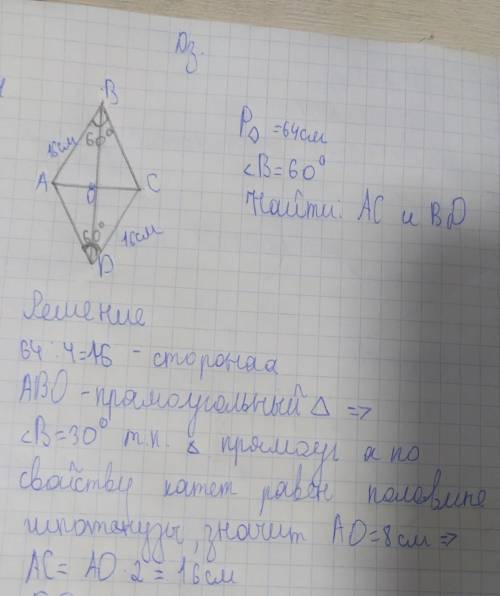 Дз.
B
16см
60°
A
O
C
60°
16см
D
P◊ =64см
∠B=60°
Найти: AC и BD
Решение
64:4=16 - сторонаа
ABO - прямоугольный △ =>
∠B=30° т.к. △ прямоуг а по
свойству катет равен половине
гипотенузы, значит AO=8см =>
AC= AO·2=16см